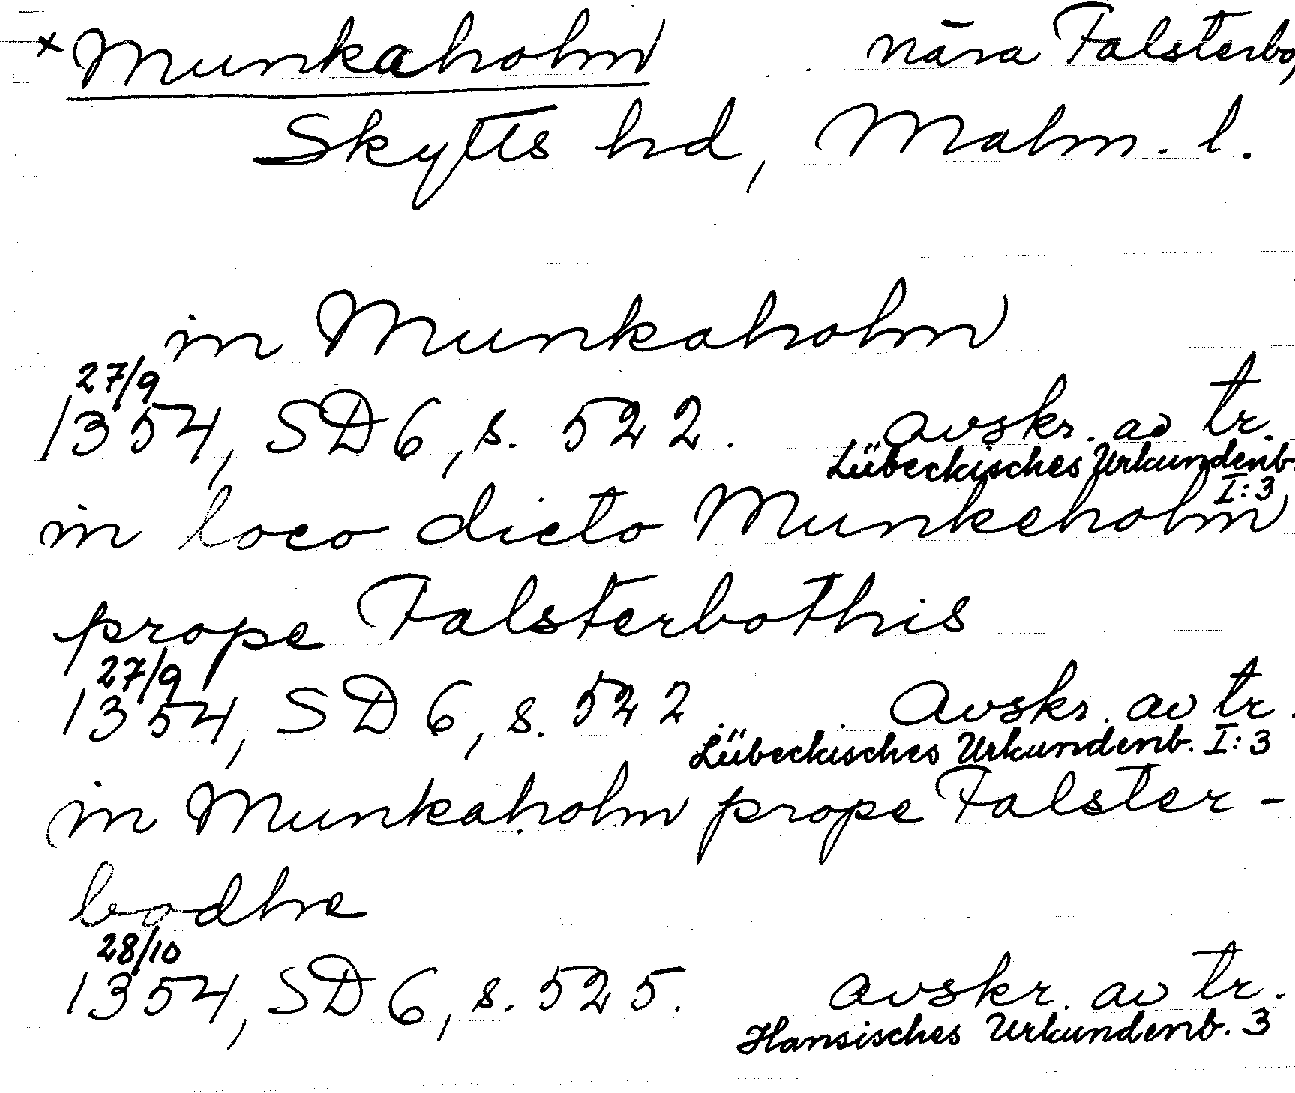 × Munkaholm nära Falsterbo,
Skytts hd, Malm. l.
in Munkaholm
27/9
1354, SD 6, s. 522. avskr. av tr.
Lübeckisches Urkundenb.
I:3
in loco dicto Munkeholm
prope Falsterbothis
27/9
1354, SD 6, s. 522. Avskr. av tr.
Lübeckisches Urkundenb. I:3
in Munkaholm prope Falster-
bodhe
28/10
1354, SD 6, s. 525. avskr. av tr.
Hansisches Urkundenb. 3